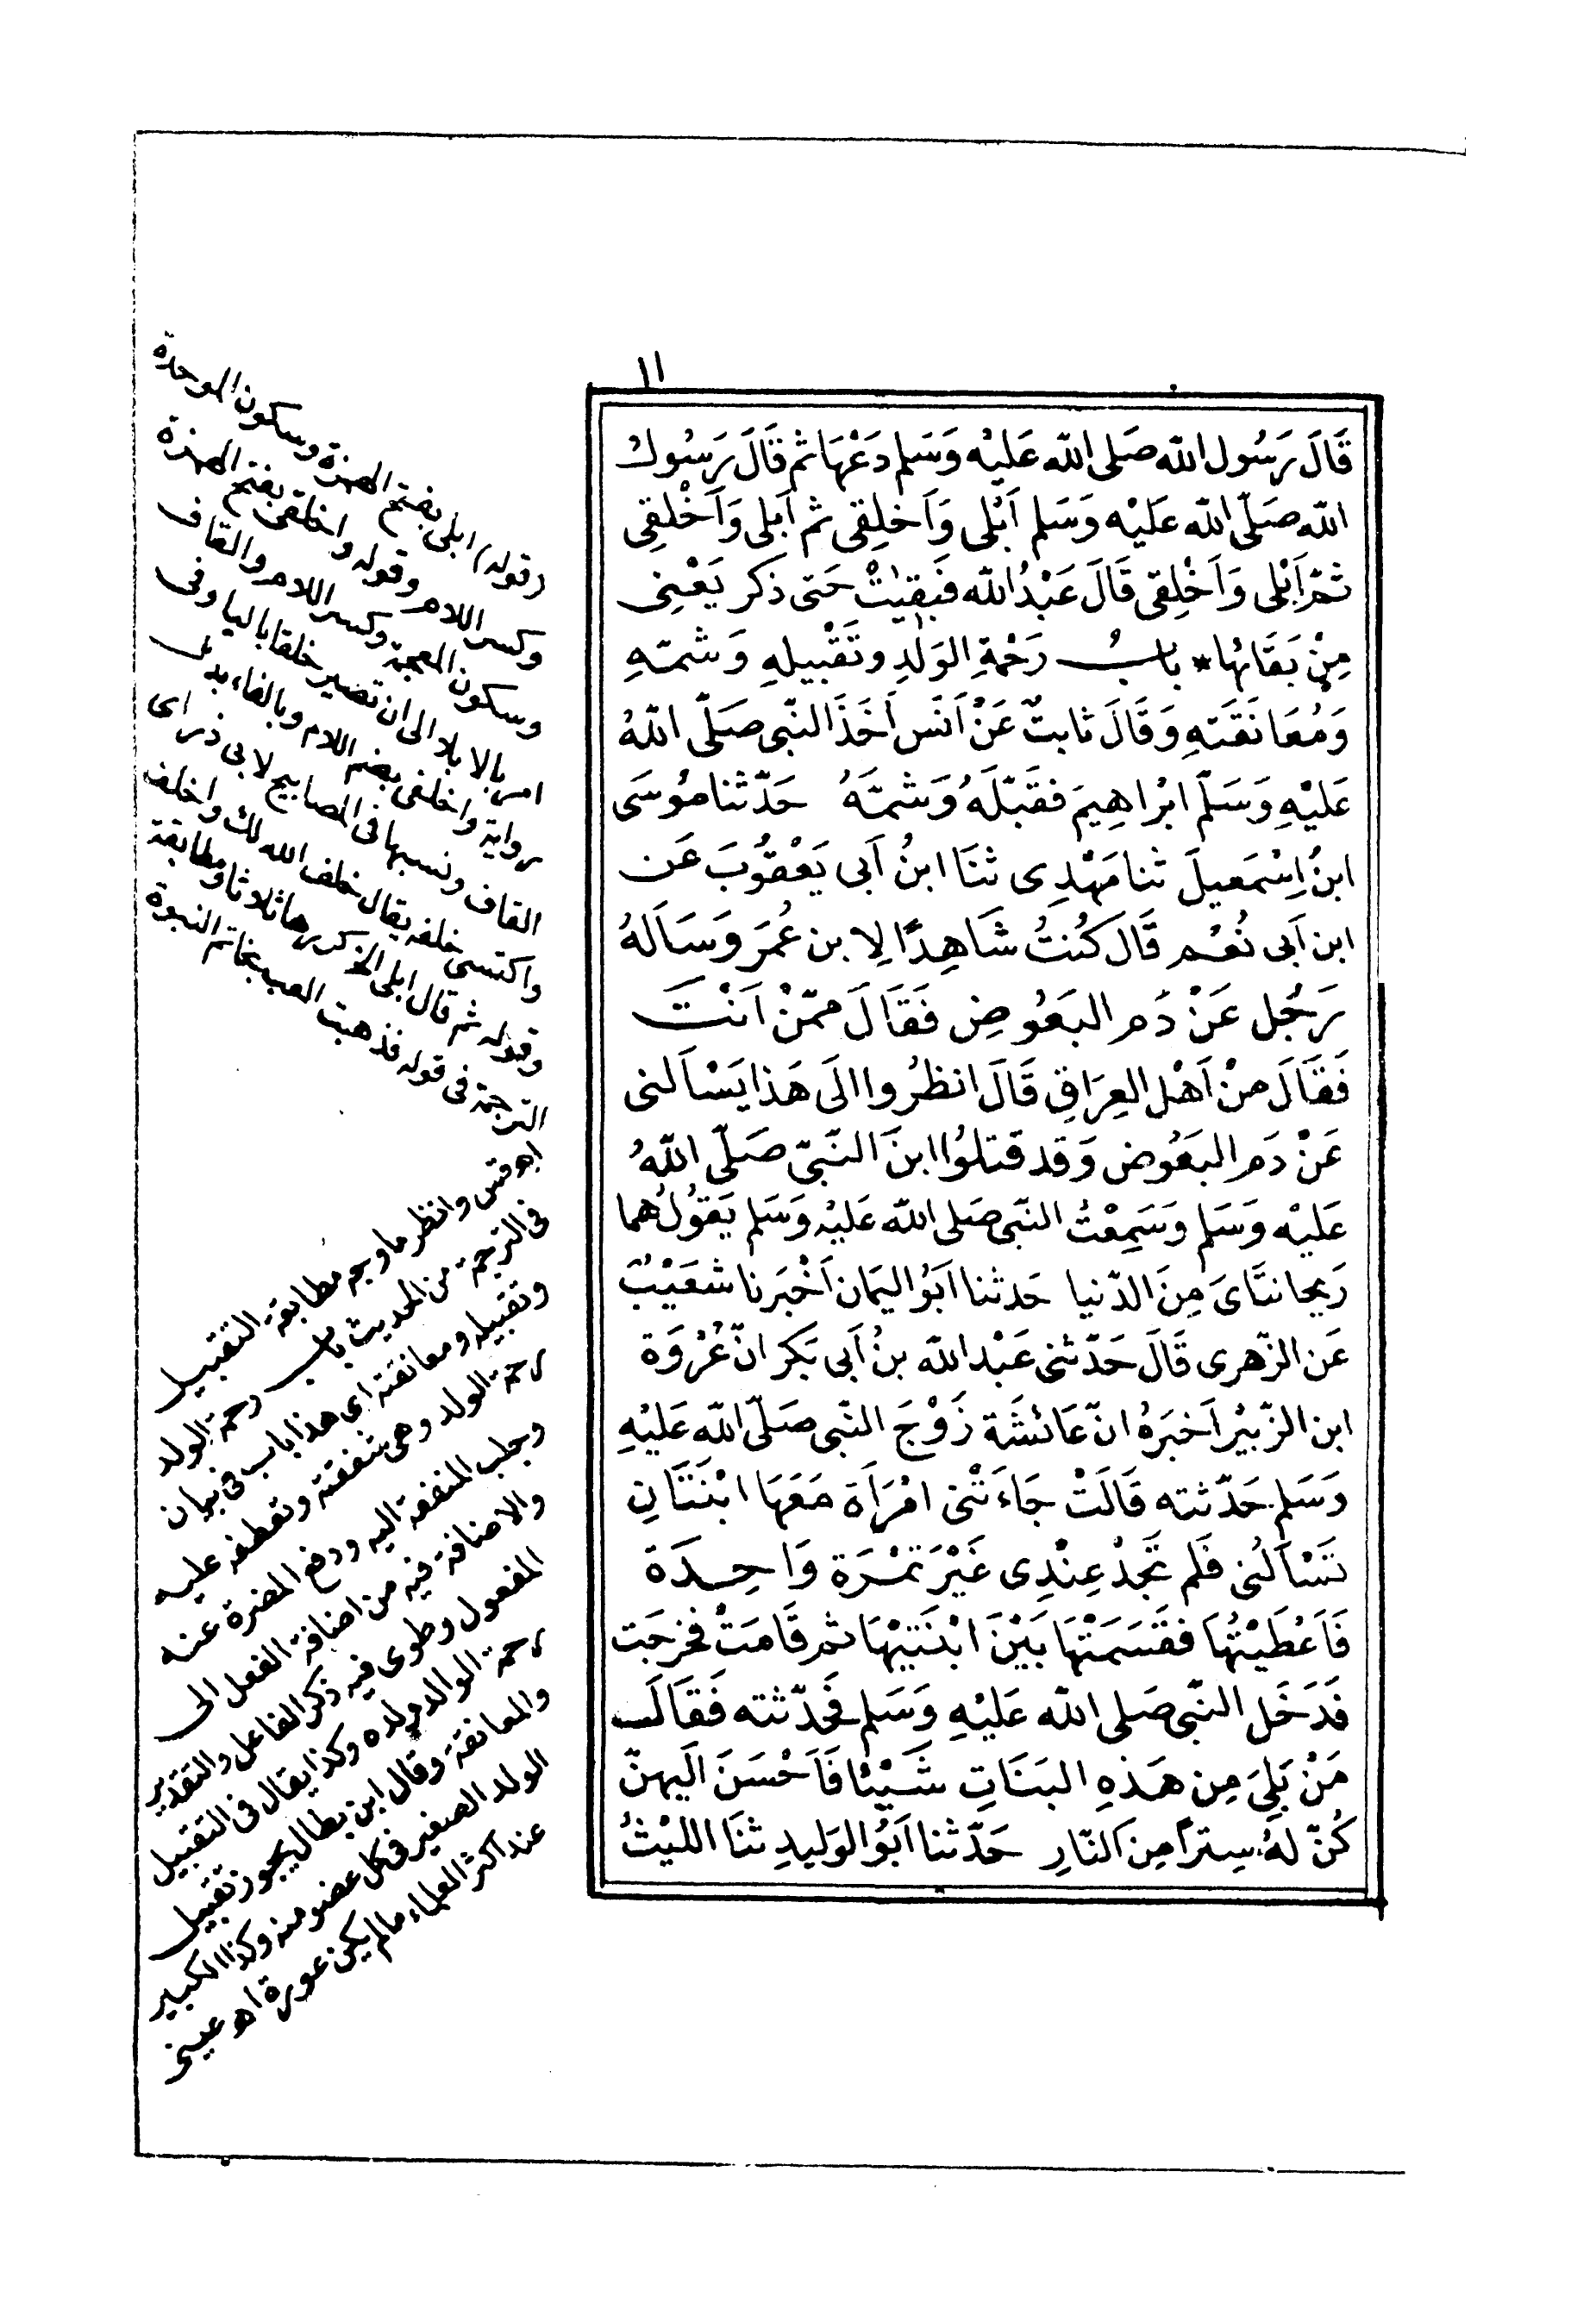 ١١
قَالَ رَسُول الله صَلى الله عَليْه وَسَلم دَعْهَا ثم قَالَ رَسُوك
الله صَلّى الله عَليْه وَسَلم اَبْلى وَاَخلِقى ثم اَبلى وَاَخْلِقى
ثمّ اَبْلى وَاَخْلِقى قَالَ عَبْدُ الله فبَقيَتْ حَتى ذكر يَعْنِى
مِنْ بَقَائهَا * بابُ رَحْمَةِ الوَلَدِ وتَقْبيلهِ وَشمّهِ
وَمُعَانَقَتهِ وَقَالَ ثابتٌ عَنْ اَنَس اَخَذَ النّبى صَلّى اللهُ
عَليْهِ وَسَلّم ابْراهِيمَ فقَبّلَهُ وَشمَّهُ حَدّثنا مُوسَى
ابنُ اِسْمَعيلَ ثنا مَهْدِى ثنَا ابنُ اَبى يَعْقُوبَ عَن
ابن اَبى نُعْم قَالَ كُنتُ شَاهِدًا لِابن عُمَرَ وَسَاَلهُ
رَجُل عَنْ دَم البَعُوضِ فَقَالَ ممّنْ اَنْتَ
فَقَالَ منْ اَهْل العِرَاقِ قَالَ انظرُوا الَى هَذا يَسْاَلنى
عَنْ دَم البَعُوض وَقد قتلُوا ابنَ النَّبىّ صَلّى اللهُ
عَليْه وَسَلم وَسَمِعْتُ النبّى صَلى الله عَليْه وَسَلم يَقوُلُ هما
رَيحانتَاىَ مِنَ الدّنيا حَدثنا اَبوُ اليَمان اَخْبَرنا شعَيْبٌ
عَن الزّهرى قَالَ حَدّثنى عَبْد الله بنُ اَبى بَكر انّ عُرْوَة
ابن الزّبيْر اَخبَرَهُ انّ عَائشَة زَوْجَ النّبى صَلّى الله عَليْهِ
وَسَلم حَدّثته قَالَتْ جَاءَتْنى امْرَاَة مَعَهَا ابْنَتَانِ
تَسْاَلُنى فَلم تجَدْ عِنْدِى غَيْرَ تمْرَة وَاحِدَة
فَاَعْطَيْتُهَا فقَسَمَتْهَا بَيْنَ ابْنَتَيْهَا ثم قَامَتْ فخرجَت
فَدَخَل النّبى صَلى الله عَليْهِ وَسَلم فحَدّثته فَقَالَ
مَنْ بَلىَ مِن هَذهِ البَنَاتِ شَيْئا فَاَحْسَنَ الَيهنّ
كُنّ لهُ سِترًا مِن النّارِ حَدّثنا اَبوُ الوَليدِ ثنَا الليْثُ
(قوله) ابلى بفتح الهمزة وسكون الموحدة
وكسر اللام وقوله واخلقى بفتح الهمزة
وسكون المعجمة وكسر اللام والقاف
امر بالابلاء الى ان تصير خلقا باليا وفى
رواية واخلفى بضم اللام وبالفاء بدل
القاف ونسبها فى المصابيح لابى ذر اى
واكتسى خلفه يقال خلف الله لك واخلف
وقوله ثم قال ابلى الخ كررها ثلاثا ومطابقة
الترجمة فى قوله فذهبت العب بخاتم النبوة
اهـ قس وانظر ما وجه مطابقة التقبيل
فى الترجمة من الحديث باب رحمة الولد
وتقبيله ومعانقته اى هذا باب فى بيان
رحمة الولد وهى شفقته وتعطفه عليه
وجلب المنفعة اليه ودفع المضرة عنه
والاضافة فيه من اضافة الفعل الى
المفعول وطوى فيه ذكر الفاعل والتقدير
رحمة الوالد ولده وكذا يقال فى التقبيل
والمعانقة وقال ابن بطال يجوز تقبيل
الولد الصغير فى كل عضو منه وكذا الكبير
عند اكثر العلماء ما لم يكن عورة اهـ عينى